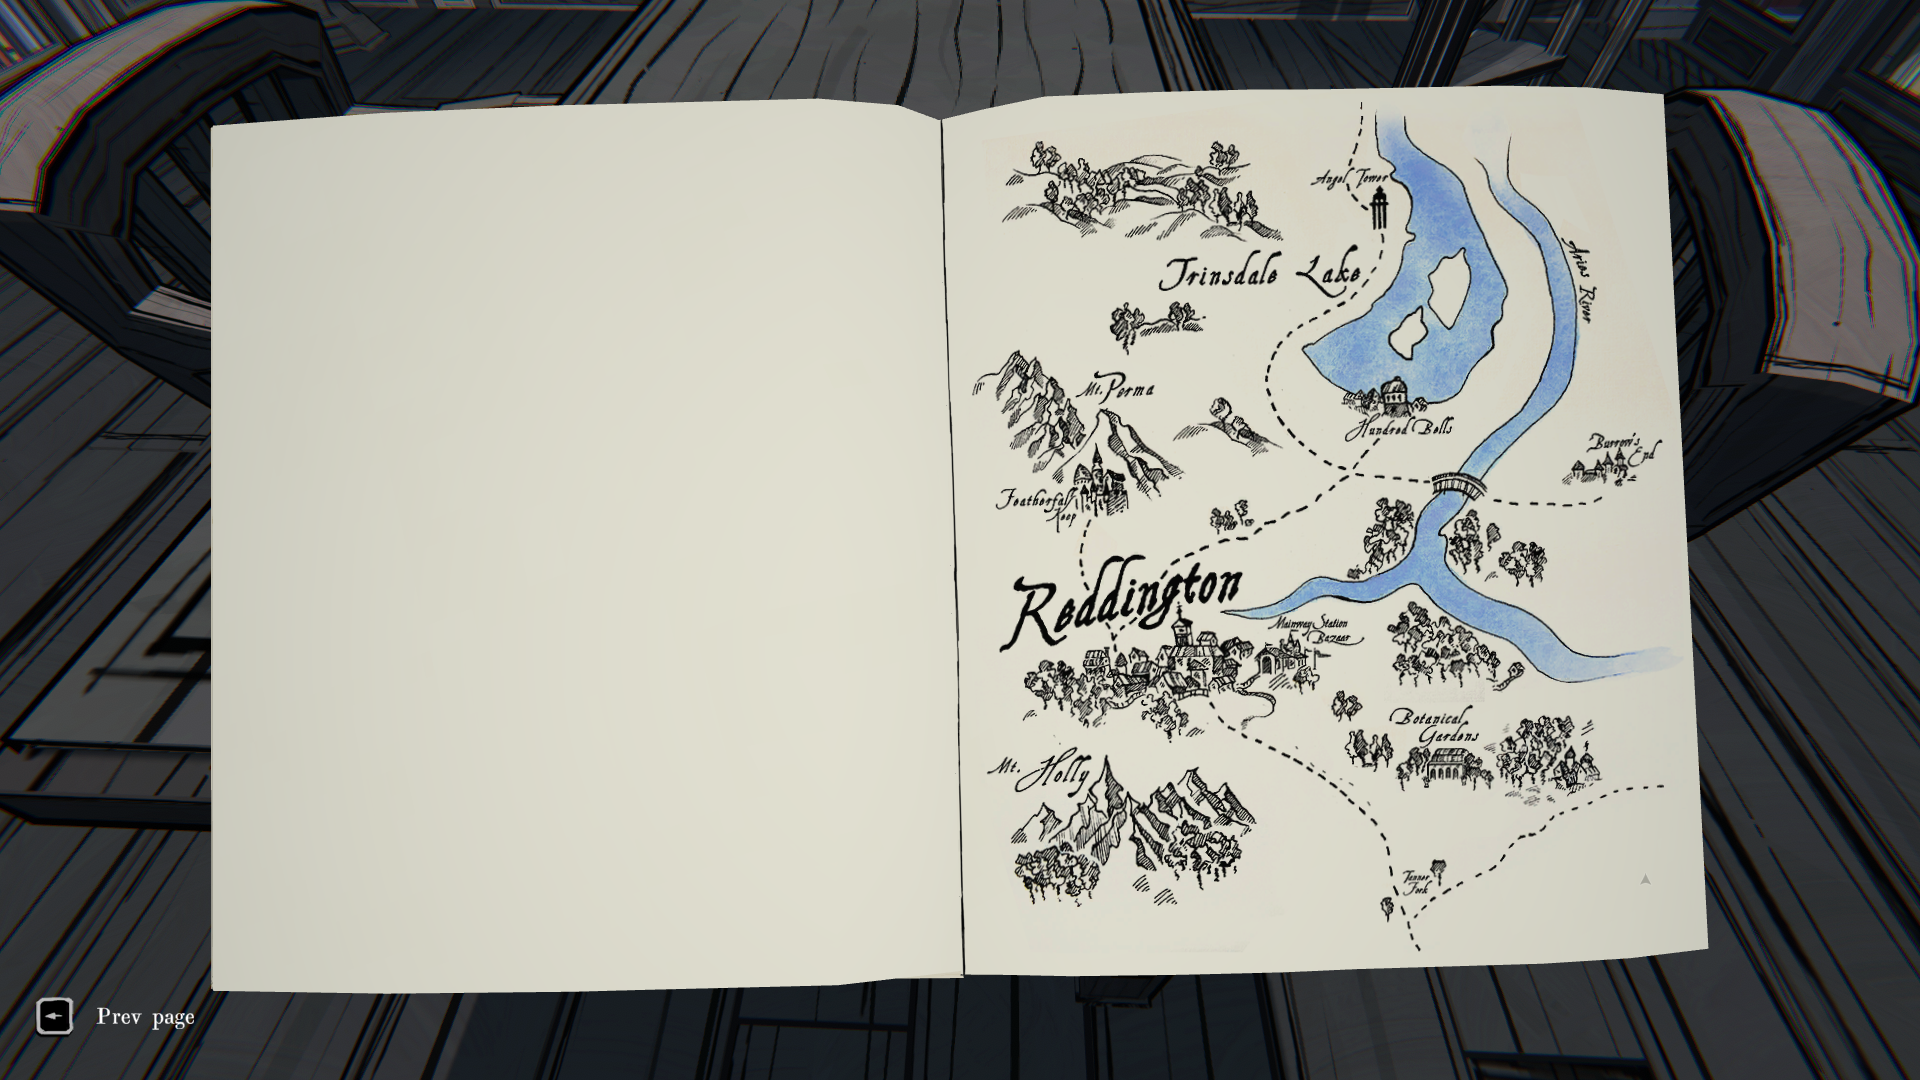 Angel Tower
Trinsdale Lake
Aries River
Mt. Perma
Hundred Bells
Burrow's
End
Featherfall
Keep
Reddington
Mainway Station
Bazaar
Botanical
Gardens
Mt. Holly
Tenner
Fork
Prev page